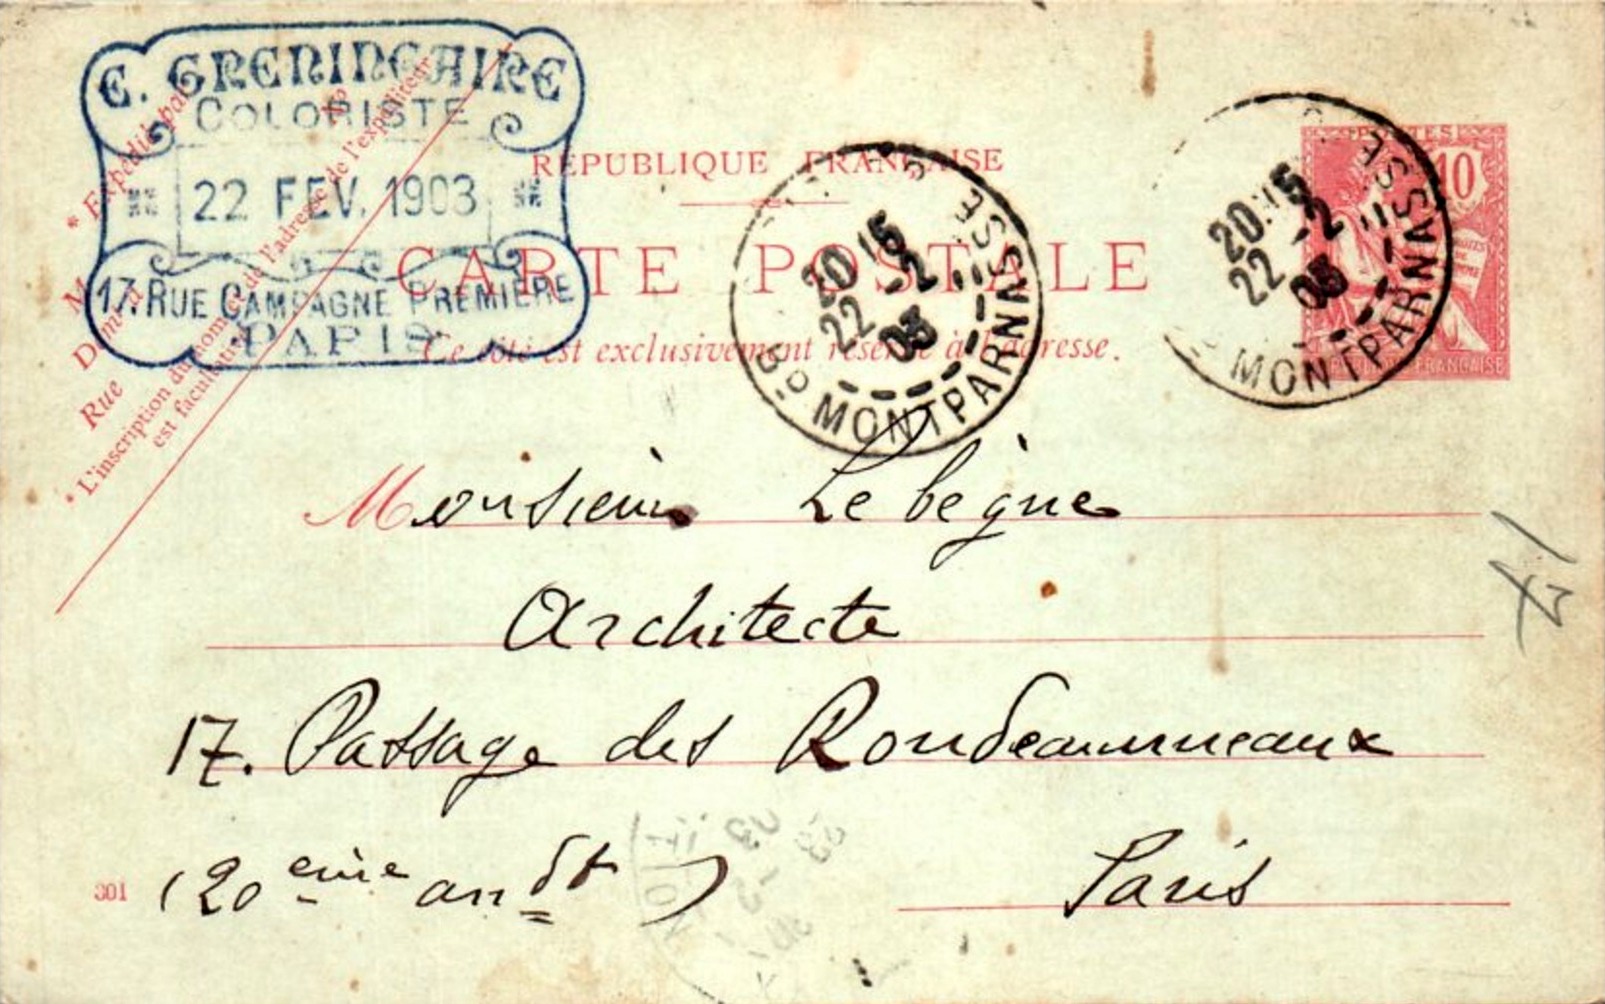 E. GRENINGAIRE
COLORISTE
22 FEV. 1903
17. RUE CAMPAGNE PREMIÈRE
PARIS
* Expédié par
M
Demt à
Rue
No
* L'inscription du nom et de l'adresse de l'expéditeur
est facultative
RÉPUBLIQUE FRANÇAISE
CARTE POSTALE
Ce côté est exclusivement réservé à l'adresse.
20 15
22 -2
03
Bd MONTPARNASSE
POSTES
10
20 15
22 -2
03
MONTPARNASSE
FRANÇAISE
Monsieur Lebègue
Architecte
17. Passage des Rondeaunneaux
(20 eme arr dt)
Paris
301